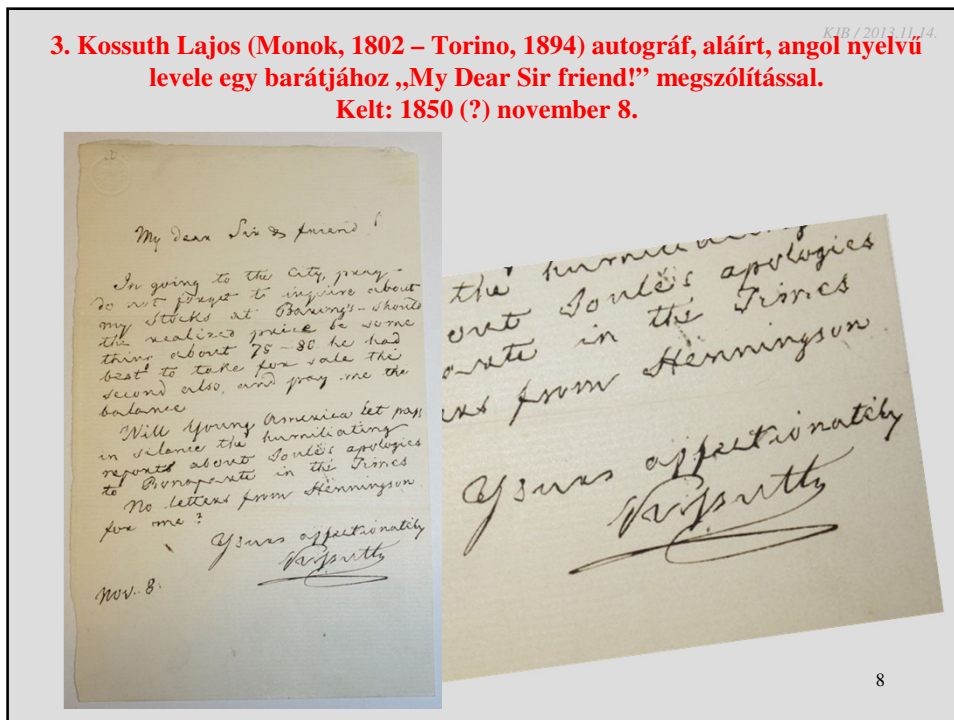 KJB / 2013.11.14.
3. Kossuth Lajos (Monok, 1802 – Torino, 1894) autográf, aláírt, angol nyelvű
levele egy barátjához „My Dear Sir friend!” megszólítással.
Kelt: 1850 (?) november 8.
My dear Sir & friend!
In going to the City, pray –
do not forget to inquire about
my Stocks at Baring's – should
the realized price be some
thing about 78–80 he had
best to take for sale the
second also, and pay me the
balance
Will Young America let pass
in silence the humiliating
reports about Soulé's apologies
to Bonaparte in the Times
No letters from Henningson
for me?
Yours affectionately
Kossuth
Nov. 8.
the humiliating
out Soulé's apologies
parte in the Times
ers from Henningson
Yours affectionately
Kossuth
8